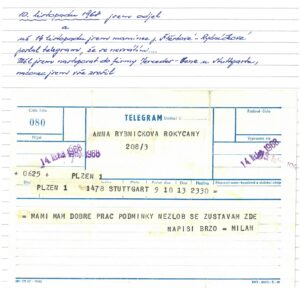 10. listopadu 1968 jsem odjel
a
už 14 listopadu jsem mamince
poslal telegram, že se nevrátím...
Měl jsem nastoupit do firmy Mercedes-Benz u Stuttgartu,
nakonec jsem vše zrušil
TELEGRAM
080
ANNA RYBNICKOVA ROKYCANY
208/3
14 1968
14 1968
+ 0625 + PLZEN 1
PLZEN 1 1478 STUTTGART 9 10 13 2330 =
= MAMI MAM DOBRE PRAC PODMINKY NEZLOB SE ZUSTAVAM ZDE
NAPISI BRZO = MILAN +